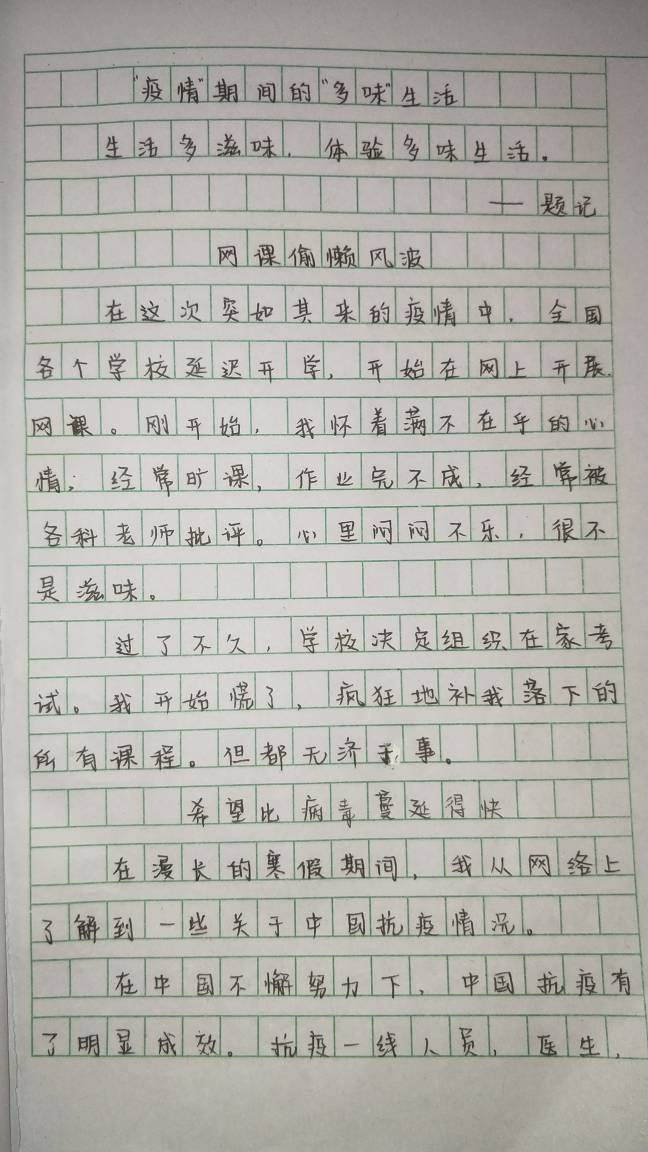 "疫情"期间的"多味"生活
生活多滋味，体验多味生活。
——题记
网课偷懒风波
在这次突如其来的疫情中，全国
各个学校延迟开学，开始在网上开展
网课。刚开始，我怀着满不在乎的心
情；经常旷课，作业完不成，经常被
各科老师批评。心里闷闷不乐，很不
是滋味。
过了不久，学校决定组织在家考
试。我开始慌了，疯狂地补我落下的
所有课程。但都无济于事。
希望比病毒蔓延得快
在漫长的寒假期间，我从网络上
了解到一些关于中国抗疫情况。
在中国不懈努力下，中国抗疫有
了明显成效。抗疫一线人员，医生，